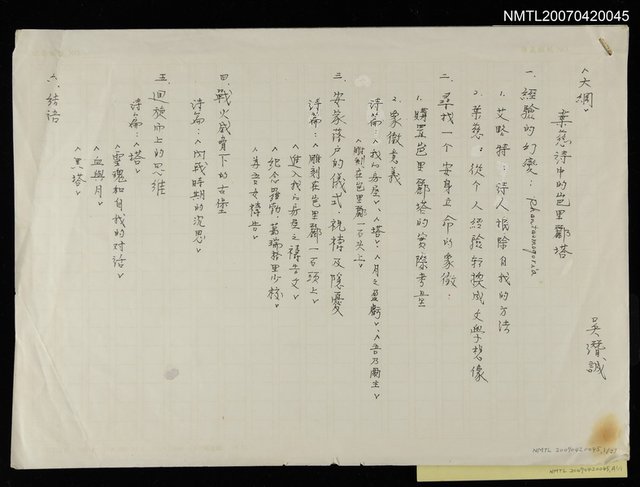 NMTL20070420045
<大綱>
葉慈詩中的邑里酈塔
吳潛誠
一. 經驗的幻變:Phantasmagoria
1. 艾略特:詩人揚除自我的方法
2. 葉慈:從個人經驗轉換成文學想像
二. 尋找一个安身立命的象徵:
1. 購置邑里酈塔的實際考量
2. 象徵意義
詩篇:<我的房屋>、<塔>、<月之盈虧>、<吾乃爾主>、
<雕刻在邑里酈一石头上>
三. 安家落户的儀式:祝禱及隱憂
詩篇:<雕刻在邑里酈一石頭上>
<進入我的房屋之禱告文>
<紀念羅勃.葛瑞格里少校>
<為吾女禱告>
四. 戰火威脅下的古堡
詩篇:<内戰時期的沉思>
五. 迴旋而上的思維
詩篇:<塔>
<靈魂和自我的对话>
<血與月>
<黑塔>
六. 結語
NMTL 20070420045
NMTL 20070420045